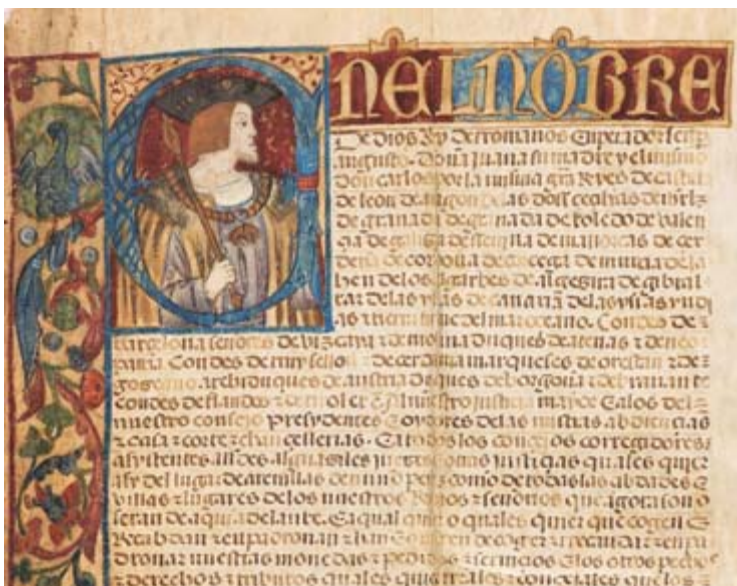 NEL NOBRE
De dios Rey De romanos Enperador
augusto. Doña Juana su madre y el mismo
Don carlos por la misma gra Reyes de castilla
de leon de aragon de las dos cecilias de
de granada de toledo de valen
de galizia de mallorcas de cer
de cordova de corcega de murcia de
hen de los algarbes de algezira de gibral
tar de las yslas de canaria de las yndi
as tierra firme del mar oceano. Condes de
barçelona señores de vizcaya z de molina duques de atenas z de neo
patria Condes de ruysellon z de cerdania marqueses de oristan z de
goçeano archiduques de austria Duques de borgoña z de bravante
Condes de flandes z tirol nuestro justicia mayor E a los del
nuestro consejo Presydentes E oydores de las nuestras abdiencias
z casa z corte z chançellerias. E a todos los conçejos corregidores
asystentes alcaldes alguasiles juezes justiçias quales quier
asy del lugar de como de todas las çibdades E
villas z lugares de los nuestros Reynos z señorios que agora son o
seran de aqui adelante. E a qual quier o quales quier que cogen E
Recabdan z enpadronan z han E ovieren de coger z recaudar z enpa
dronar nuestras monedas z pedidos z servicios E los otros pechos
z derechos z tributos quales quier reales z conçejales que